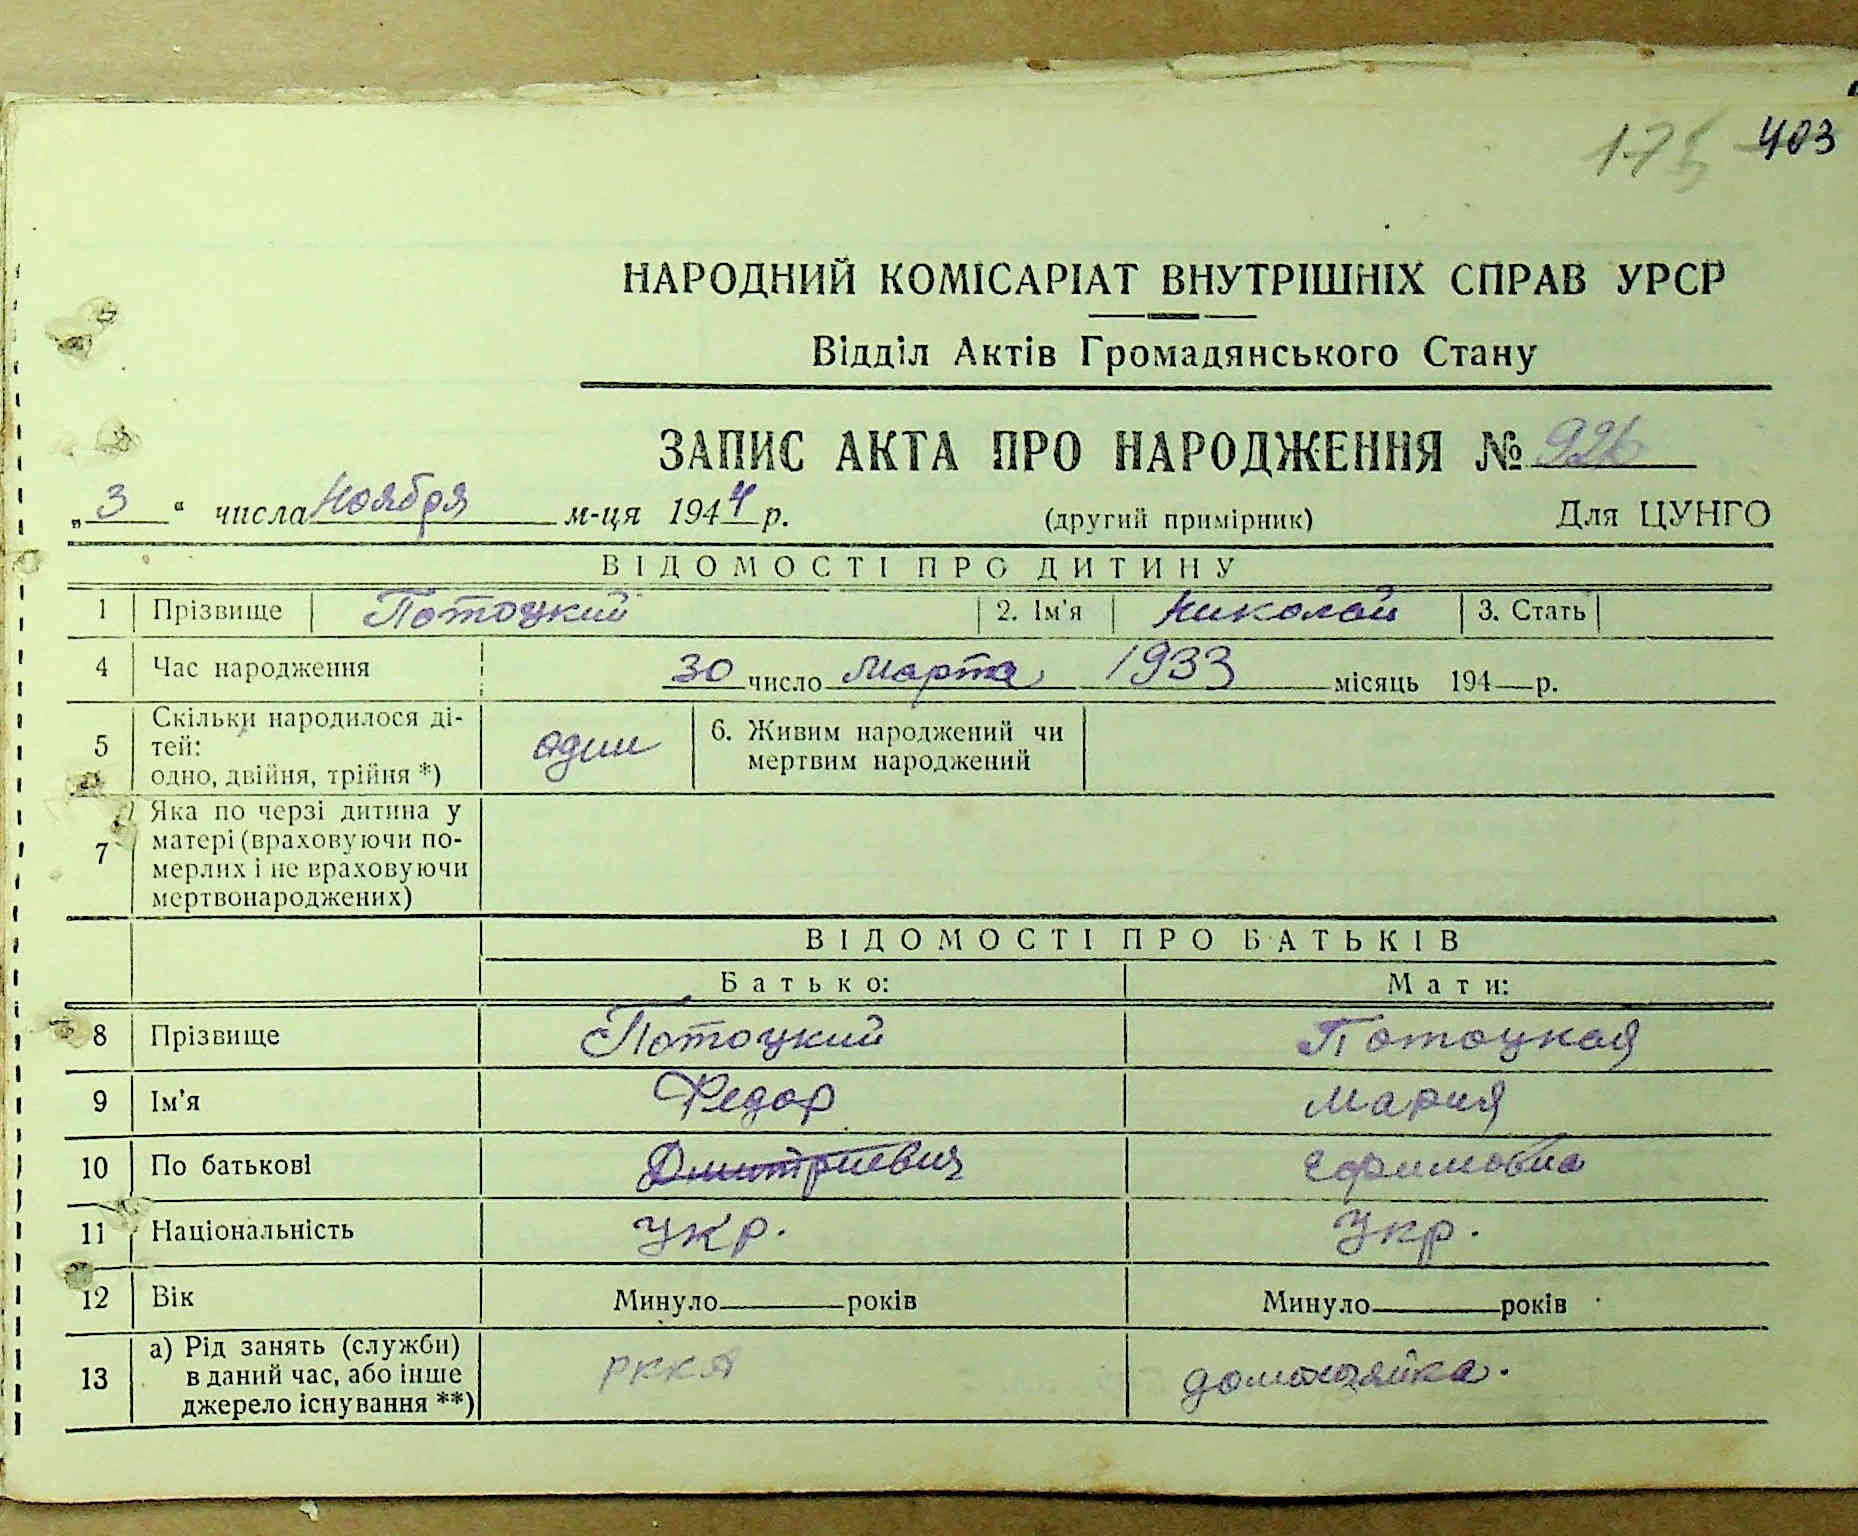 175 403
НАРОДНИЙ КОМІСАРІАТ ВНУТРІШНІХ СПРАВ УРСР
Відділ Актів Громадянського Стану
ЗАПИС АКТА ПРО НАРОДЖЕННЯ № 926
„3“ числа Ноября м-ця 1944 р. (другий примірник) Для ЦУНГО
ВІДОМОСТІ ПРО ДИТИНУ
1 Прізвище Потоцкий 2. Ім'я Николай 3. Стать
4 Час народження 30 число Марта 1933 місяць 194—р.
5 Скільки народилося ді-
тей:
одно, двійня, трійня *) один 6. Живим народжений чи
мертвим народжений
7 Яка по черзі дитина у
матері (враховуючи по-
мерлих і не враховуючи
мертвонароджених)
ВІДОМОСТІ ПРО БАТЬКІВ
Батько: Мати:
8 Прізвище Потоцкий Потоцкая
9 Ім'я Федор Мария
10 По батькові Дмитриевич Ефимовна
11 Національність Укр. Укр.
12 Вік Минуло років Минуло років
13 а) Рід занять (служби)
в даний час, або інше
джерело існування **) РККА домохозяйка.